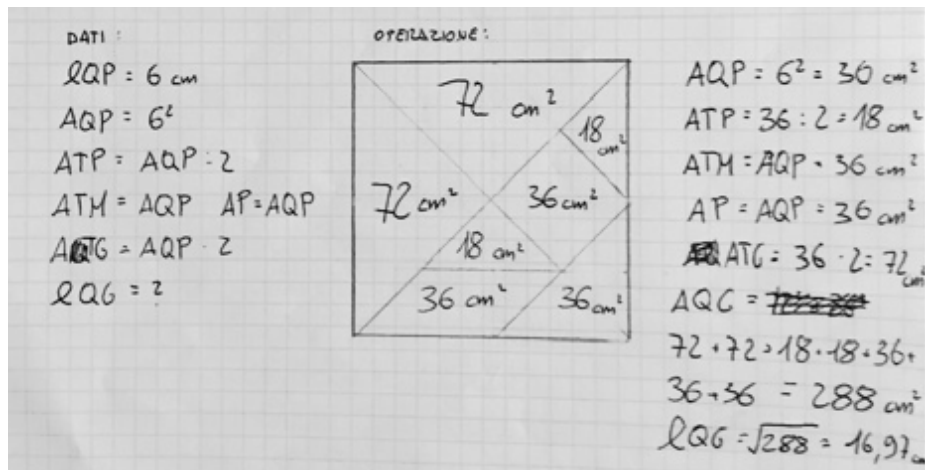 DATI:
lQP = 6 cm
AQP = 6²
ATP = AQP : 2
ATM = AQP AP = AQP
ATG = AQP · 2
lQG = ?
OPERAZIONE:
72 cm²
18 cm²
72 cm²
36 cm²
18 cm²
36 cm²
36 cm²
AQP = 6² = 36 cm²
ATP = 36 : 2 = 18 cm²
ATM = AQP = 36 cm²
AP = AQP = 36 cm²
ATG = 36 · 2 = 72 cm²
AQG =
72 + 72 + 18 + 18 + 36 +
36 + 36 = 288 cm²
lQG = √288 = 16,97 cm